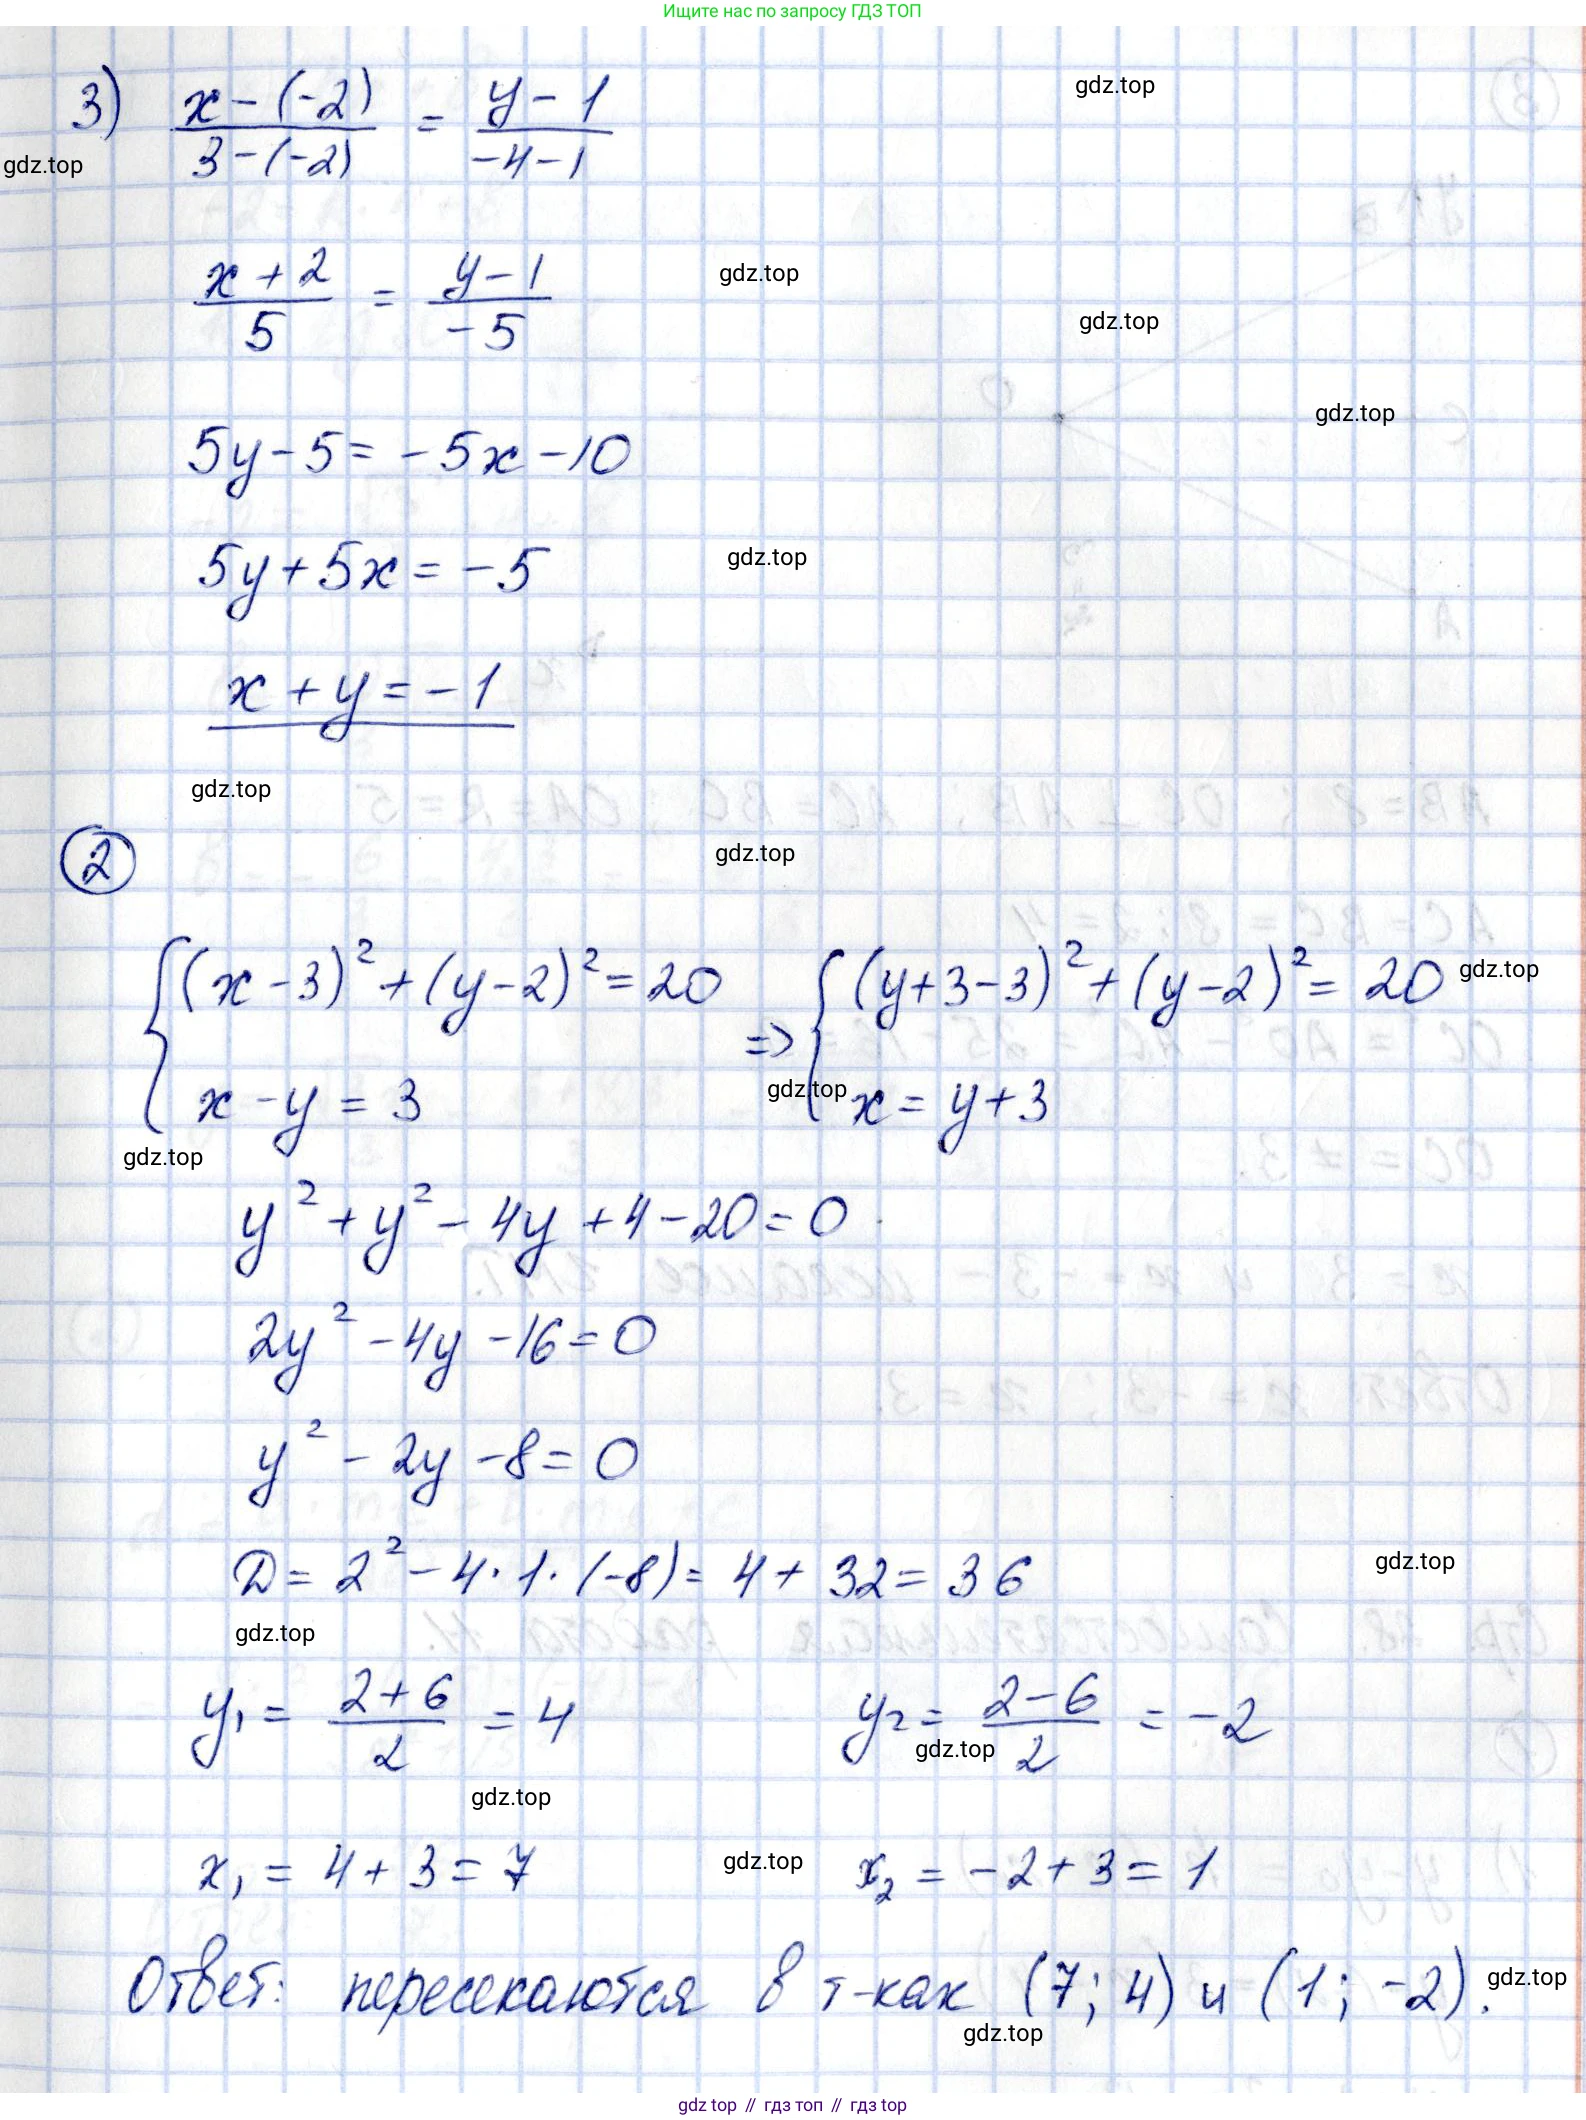 Ищите нас по запросу ГДЗ ТОП
3) (x - (-2))/(3 - (-2)) = (y - 1)/(-4 - 1)
gdz.top
gdz.top
(x + 2)/5 = (y - 1)/(-5)
gdz.top
gdz.top
gdz.top
5y - 5 = -5x - 10
5y + 5x = -5
gdz.top
x + y = -1
gdz.top
gdz.top
2
{ (x - 3)² + (y - 2)² = 20 => { (y + 3 - 3)² + (y - 2)² = 20
gdz.top
x - y = 3 x = y + 3
gdz.top
gdz.top
y² + y² - 4y + 4 - 20 = 0
2y² - 4y - 16 = 0
y² - 2y - 8 = 0
D = 2² - 4 · 1 · (-8) = 4 + 32 = 36
gdz.top
gdz.top
y₁ = (2 + 6)/2 = 4 y₂ = (2 - 6)/2 = -2
gdz.top
gdz.top
x₁ = 4 + 3 = 7 x₂ = -2 + 3 = 1
gdz.top
Ответ: пересекаются в т-ках (7; 4) и (1; -2).
gdz.top
gdz.top
gdz top // гдз топ // гдз top